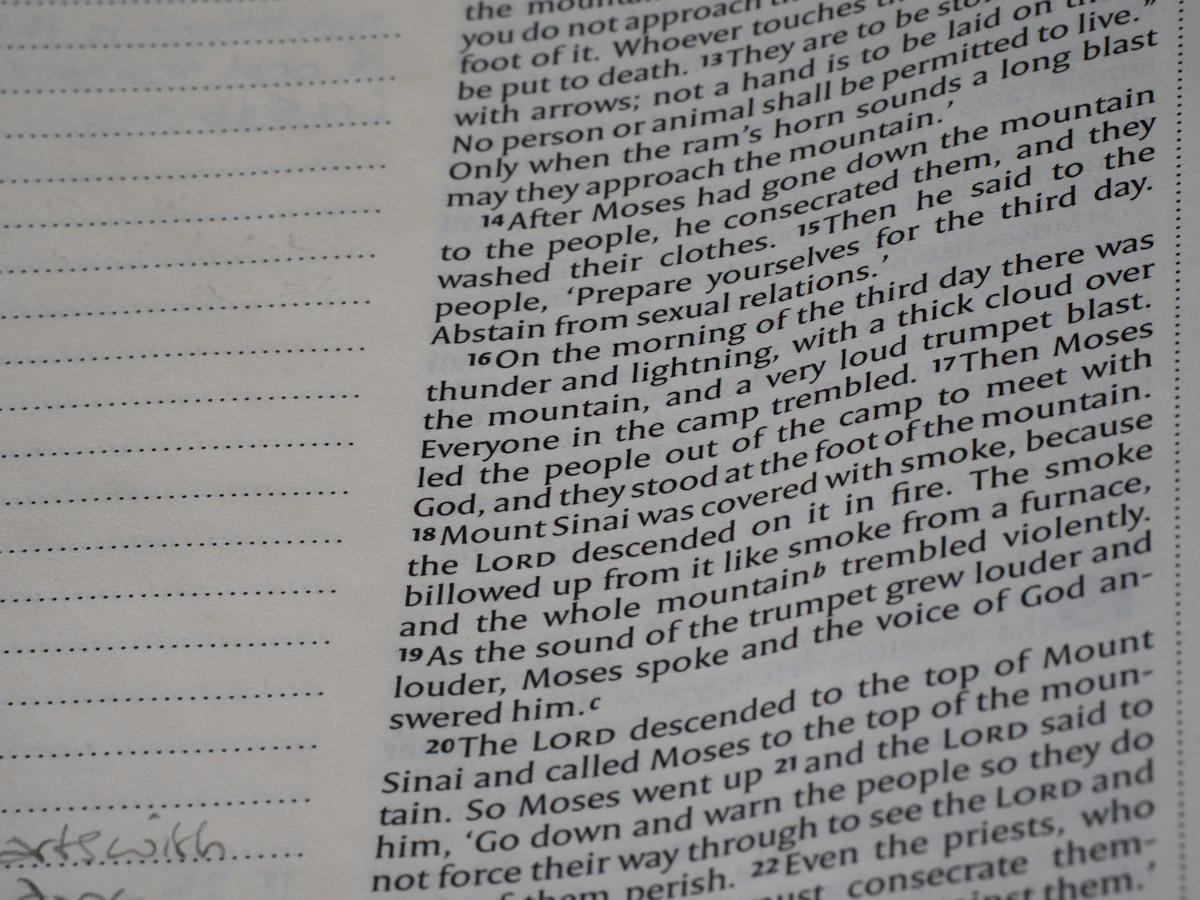 the mountain
you do not approach the
foot of it. Whoever touches the
be put to death. 13They are to be stoned
with arrows; not a hand is to be laid on them.
No person or animal shall be permitted to live."
Only when the ram's horn sounds a long blast
may they approach the mountain.'
14After Moses had gone down the mountain
to the people, he consecrated them, and they
washed their clothes. 15Then he said to the
people, 'Prepare yourselves for the third day.
Abstain from sexual relations.'
16On the morning of the third day there was
thunder and lightning, with a thick cloud over
the mountain, and a very loud trumpet blast.
Everyone in the camp trembled. 17Then Moses
led the people out of the camp to meet with
God, and they stood at the foot of the mountain.
18Mount Sinai was covered with smoke, because
the LORD descended on it in fire. The smoke
billowed up from it like smoke from a furnace,
and the whole mountainb trembled violently.
19As the sound of the trumpet grew louder and
louder, Moses spoke and the voice of God an-
swered him.c
20The LORD descended to the top of Mount
Sinai and called Moses to the top of the moun-
tain. So Moses went up 21and the LORD said to
him, 'Go down and warn the people so they do
not force their way through to see the LORD and
of them perish. 22Even the priests, who
must consecrate them-
against them.'